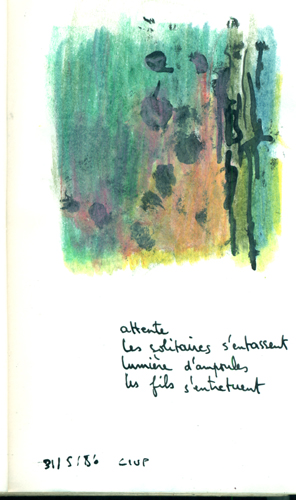 attente
les solitaires s'entassent
lumière d'ampoules
les fils s'entretuent
31/5/86 CIUP